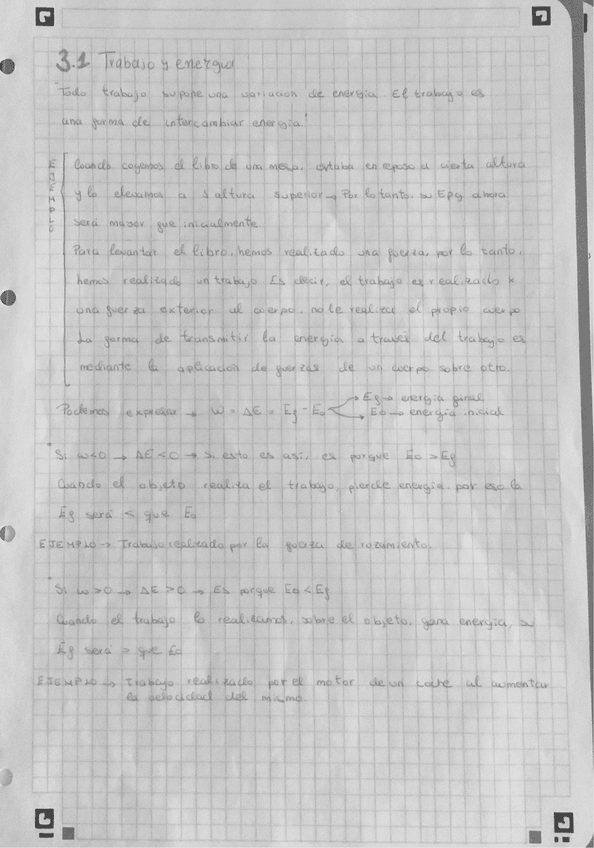 3.1 Trabajo y energía
"Todo trabajo supone una variación de energía. El trabajo es
una forma de intercambiar energía"
EJEMPLO
Cuando cogemos el libro de una mesa, estaba en reposo a cierta altura
y lo elevamos a 1 altura superior → Por lo tanto, su Epg ahora
será mayor que inicialmente
Para levantar el libro, hemos realizado una fuerza, por lo tanto,
hemos realizado un trabajo. Es decir, el trabajo es realizado x
una fuerza exterior al cuerpo, no le realiza el propio cuerpo
La forma de transmitir la energía a través del trabajo es
mediante la aplicación de fuerzas de un cuerpo sobre otro.
Podemos expresar → W = ΔE = Ef - Eo
→ Ef → energía final
→ Eo → energía inicial
· Si w<0 → ΔE<0 → si esto es así, es porque Eo > Ef
Cuando el objeto realiza el trabajo, pierde energía, por eso la
Ef será < que Eo
EJEMPLO → Trabajo realizado por la fuerza de rozamiento.
· Si w>0 → ΔE>0 → Es porque Eo < Ef
Cuando el trabajo lo realizamos, sobre el objeto, gana energía, su
Ef será > que Eo
EJEMPLO → Trabajo realizado por el motor de un coche al aumentar
la velocidad del mismo.